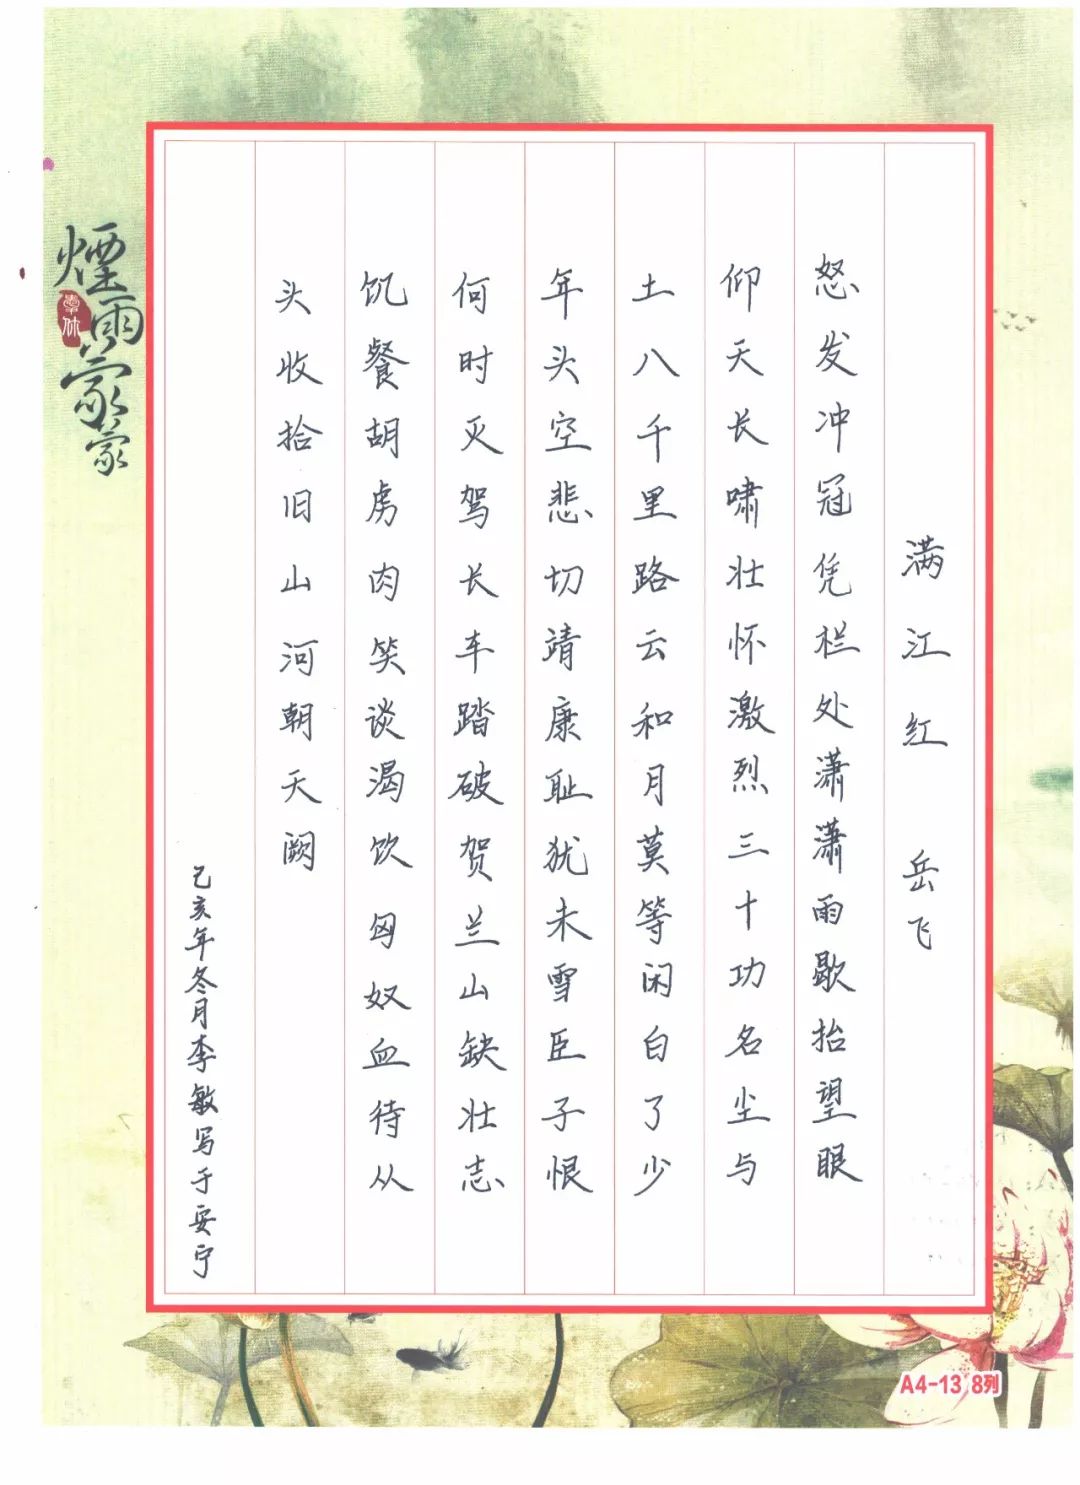 满江红 岳飞
怒发冲冠凭栏处潇潇雨歇抬望眼
仰天长啸壮怀激烈三十功名尘与
土八千里路云和月莫等闲白了少
年头空悲切靖康耻犹未雪臣子恨
何时灭驾长车踏破贺兰山缺壮志
饥餐胡虏肉笑谈渴饮匈奴血待从
头收拾旧山河朝天阙
己亥年冬月李敏写于安宁
煙雨蒙蒙
A4-13 8列